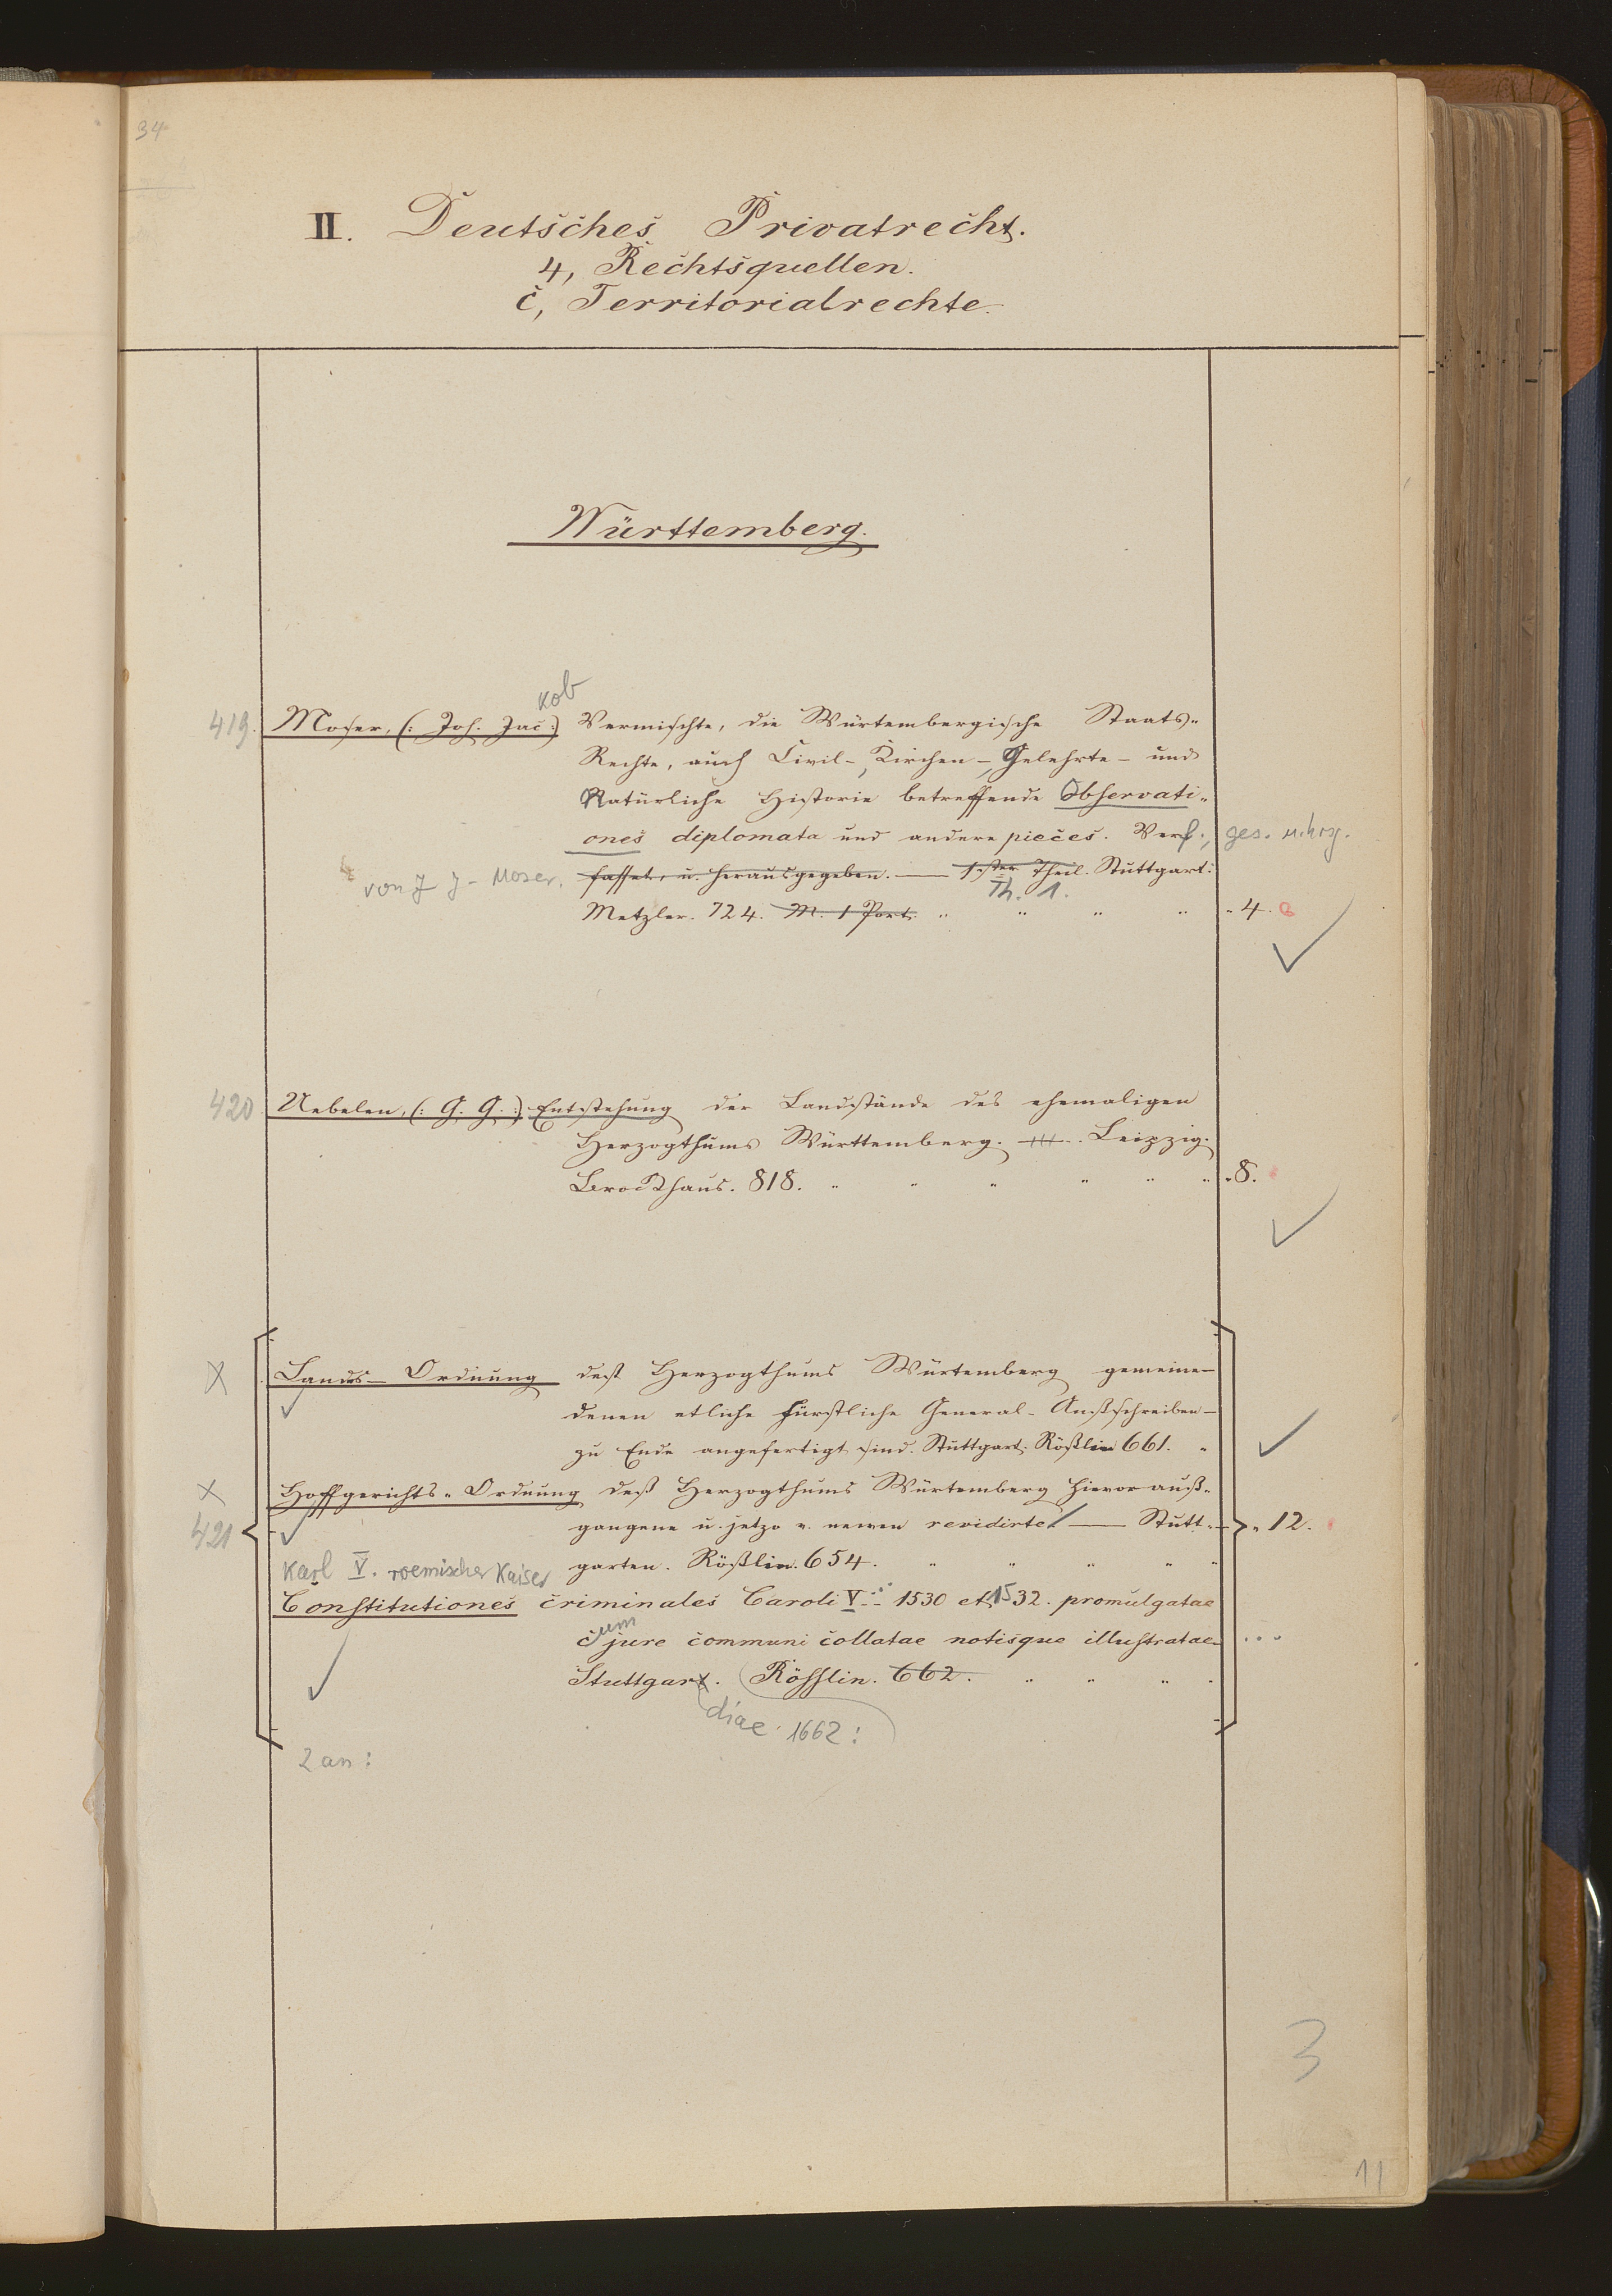 34
II. Deutsches Privatrecht.
4, Rechtsquellen.
c, Territorialrechte.
Württemberg.
kob
419. Moser, (: Joh. Jac :) Vermischte, die Würtembergische Staats-
Rechte, auch Civil-, Kirchen-, Gelehrte- und
Natürliche Historie betreffende Observati-
ones diplomata und andere pieces. Verf., ges. u. hrsg.
von J J. Moser. fasset, u. herausgegeben. — 1ster Theil. Stuttgart:
Th. 1.
Metzler. 724. M. 1 Port. " " " " " 4.
420 Uebelen, (: G. G. :) Entstehung der Landstände des ehemaligen
Herzogthums Württemberg. Leipzig.
Brockhaus. 818. " " " " " " " 8.
Lands- Ordnung dest Herzogthums Würtemberg gemeine-
denen etliche Fürstliche General- Außschreiben-
zu Ende angefertigt sind. Stuttgart: Rößlin 661. "
Hoffgerichts- Ordnung deß Herzogthums Würtemberg hievor auß-
421 gangene u. jetzo v. newen revidirte — Stutt- " 12.
Karl V. roemischer Kaiser garten. Rößlin. 654. " " " " "
Constitutiones criminales Caroli V 1530 et 1532. promulgatae
cum jure communi collatae notisque illustratae. ...
Stuttgart. Rösslin. 662. " " " "
diae 1662:
2 an:
3
11